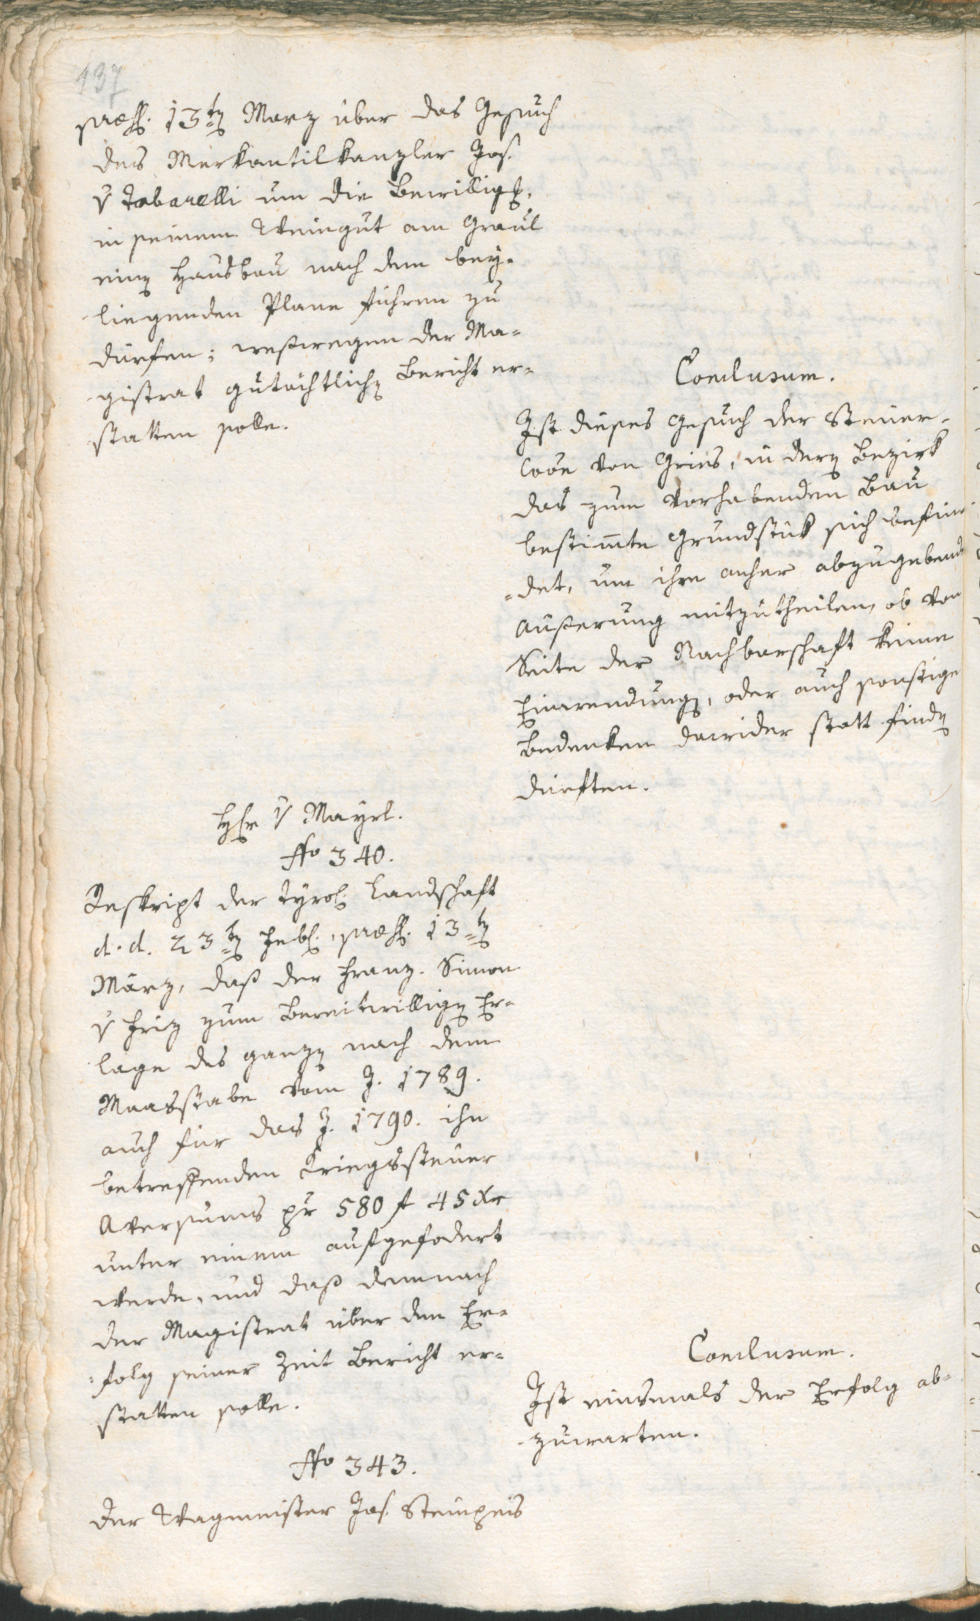 137
præs. 13ten Marz über das Gesuch
des Merkantilkanzler Jos.
v Tabarelli um die Bewilligg.
in seinem Weingut am Graul
einen Hausbau nach dem bey-
liegenden Plane führen zu
dürfen; weßwegen der Ma-
gistrat gutächtlichen Bericht er-
statten solle.
Conclusum.
Ist dieses Gesuch der Steuer-
Coõn von Gries, in deren Bezirk
das zum Vorhabenden Bau
bestimte Grundstük sich befin-
det, um ihre anher abzugebende
Äusserung mitzutheilen, ob von
Seite der Nachbarschaft keine
Einwendungen, oder auch sonstige
Bedenken dawider statt finden
dürften.
Hr v Mayrl.
No 340.
Reskript der Tyrol. Landschaft
d. d. 23ten Febr., præs. 13ten
März, daß der Franz. Simon
v Friz zum Bereitwilligen Er-
lage des ganzen nach dem
Maasstabe vom J. 1789.
auch für das J. 1790. ihn
betreffenden Kriegssteuer
Aversums pr 580 f 45 Xr
unter einem aufgefodert
werde, und daß demnach
der Magistrat über den Er-
folg seiner Zeit Bericht er-
statten solle.
Conclusum.
Ist einsmals der Erfolg ab-
zuwarten.
No 343.
Der Wagmeister Jos.